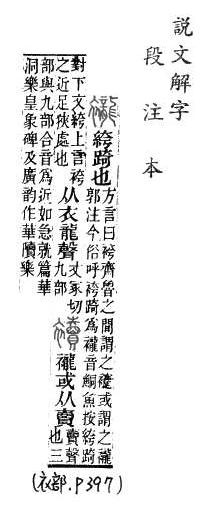 説文解字
段注本
襱
絝踦也
方言曰袴齊魯之間謂之䙭或謂之襱
郭注今俗呼袴踦爲襱音鮦魚按絝踦
對下文絝上言袴
之近足狹處也
从衣龍聲
丈冢切
九部
襩
襱或从賣
賣聲
也三
部與九部合音爲近如急就篇華
洞樂皇象碑及廣韵作華襩樂
(衣部.P397)